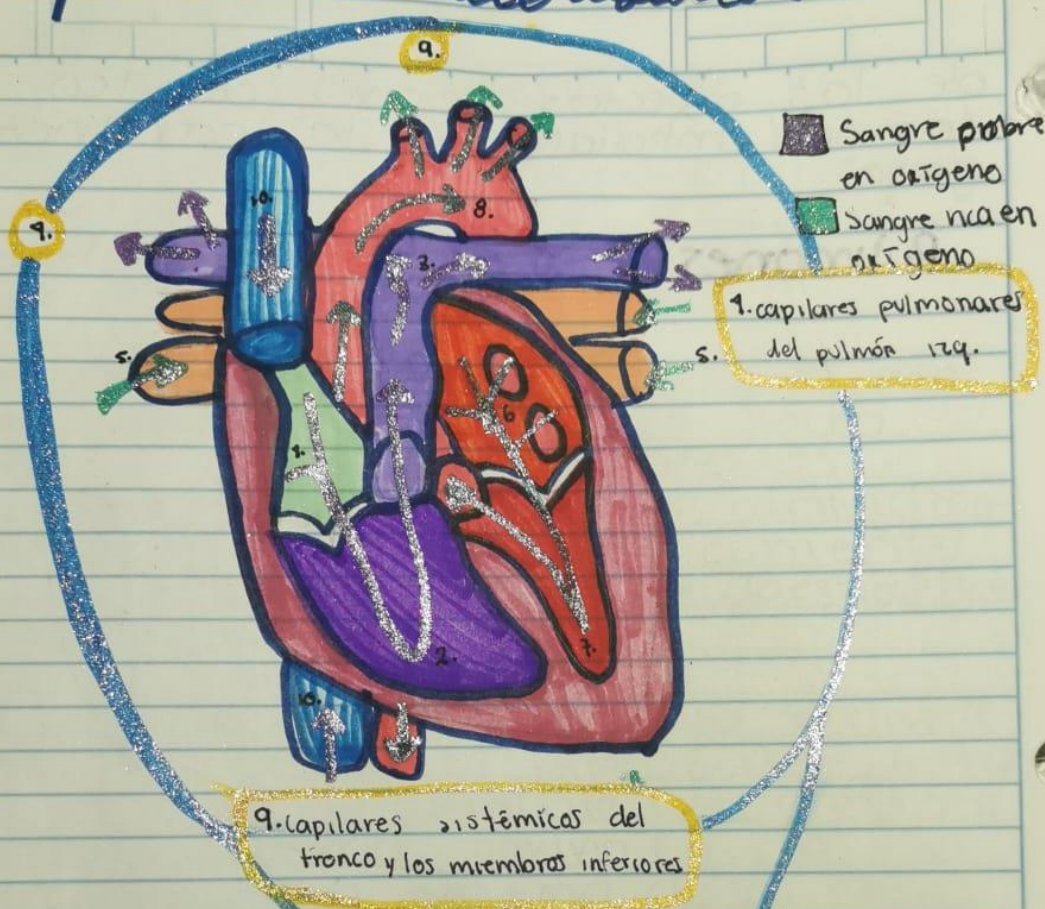 9.
Sangre probre
en oxígeno
Sangre rica en
oxígeno
9.
10.
8.
3.
4. capilares pulmonares
del pulmón izq.
5.
5.
6
1.
2.
7.
10.
9. capilares sistémicos del
tronco y los miembros inferiores